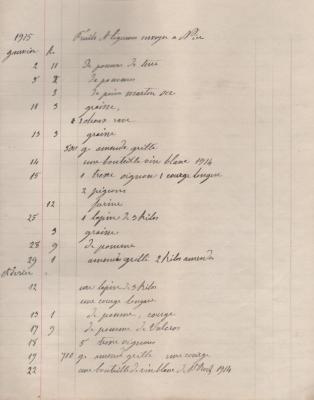 1915 Fruits & légumes envoyer a Nice
janvier K
2 11 de pomme de terre
5 de pommes
3 de pois
11 3 graisse,
2 rave
13 3 graisse
500 g amande grillé
14 une bouteille vin blanc 1914
15 1 tresse oignon 1 courge longue
2 pigeons
12 farine
25 1 lapin de 3 kilos
3 graisse
28 9 de pomme
29 1 amende grillé 2 kilos amende
février
12 un lapin de 3 kilos
une courge longue
13 1 de pomme, courge
17 9 de pomme de Valeros
18 5 tresse oignons
19 700 g amende grillé une courge
22 une bouteille de vin blanc de 1914